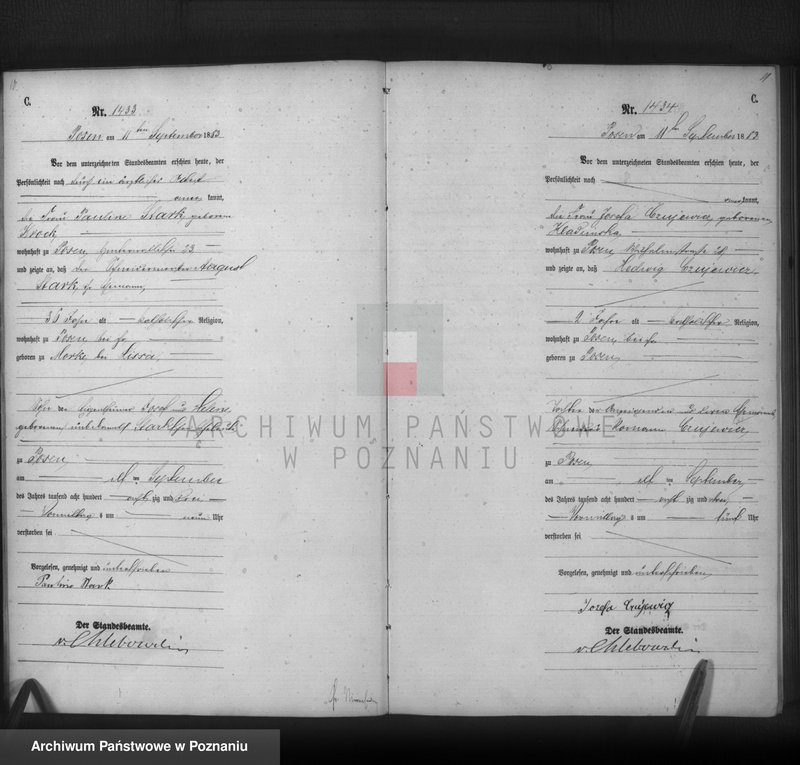 C.
Nr. 1433
Posen am 11ten September 1883
Vor dem unterzeichneten Standesbeamten erschien heute, der
Persönlichkeit nach durch ein
kannt,
die Frau Pauline Stark geborene
wohnhaft zu Posen 23
und zeigte an, daß der August
Stark ihr Ehemann,
35 Jahr alt katholischer Religion,
wohnhaft zu Posen bei ihr
geboren zu bei Lissa,
Sohn der Eigenthümer Josef und Helene
geborenen unbekannt Stark'schen Eheleute
zu Posen
am elf ten September
des Jahres tausend acht hundert acht zig und drei
Vormittag s um neun Uhr
verstorben sei
Vorgelesen, genehmigt und unterschrieben
Pauline Stark
Der Standesbeamte.
v. Chlebowski
11
C.
Nr. 1434
Posen am 11 September 1883
Vor dem unterzeichneten Standesbeamten erschien heute, der
Persönlichkeit nach
kannt,
die Frau Josefa geborene
wohnhaft zu Posen
und zeigte an, daß Hedwig
2 Jahre alt katholischer Religion,
wohnhaft zu Posen bei ihr
geboren zu Posen
Tochter der Anzeigenden und ihres Ehemannes
Roman
zu Posen
am elf ten September
des Jahres tausend acht hundert acht zig und drei
Vormittag s um fünf Uhr
verstorben sei
Vorgelesen, genehmigt und unterschrieben
Josefa
Der Standesbeamte.
v. Chlebowski
ARCHIWUM PAŃSTWOWE
W POZNANIU
Archiwum Państwowe w Poznaniu